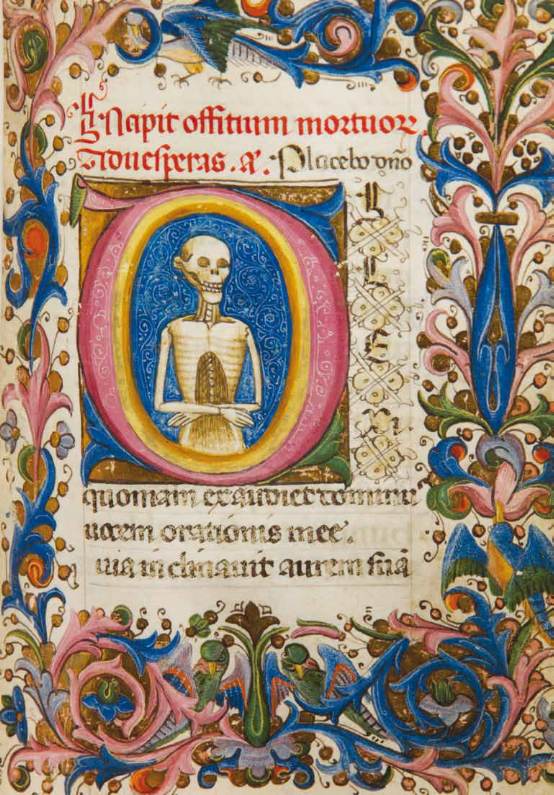 Incipit offitium mortuoꝝ
Ad uesperas. a. Placebo dño
D
quoniam exaudiet dominus
uocem orationis mee.
uia inclinauit aurem suã